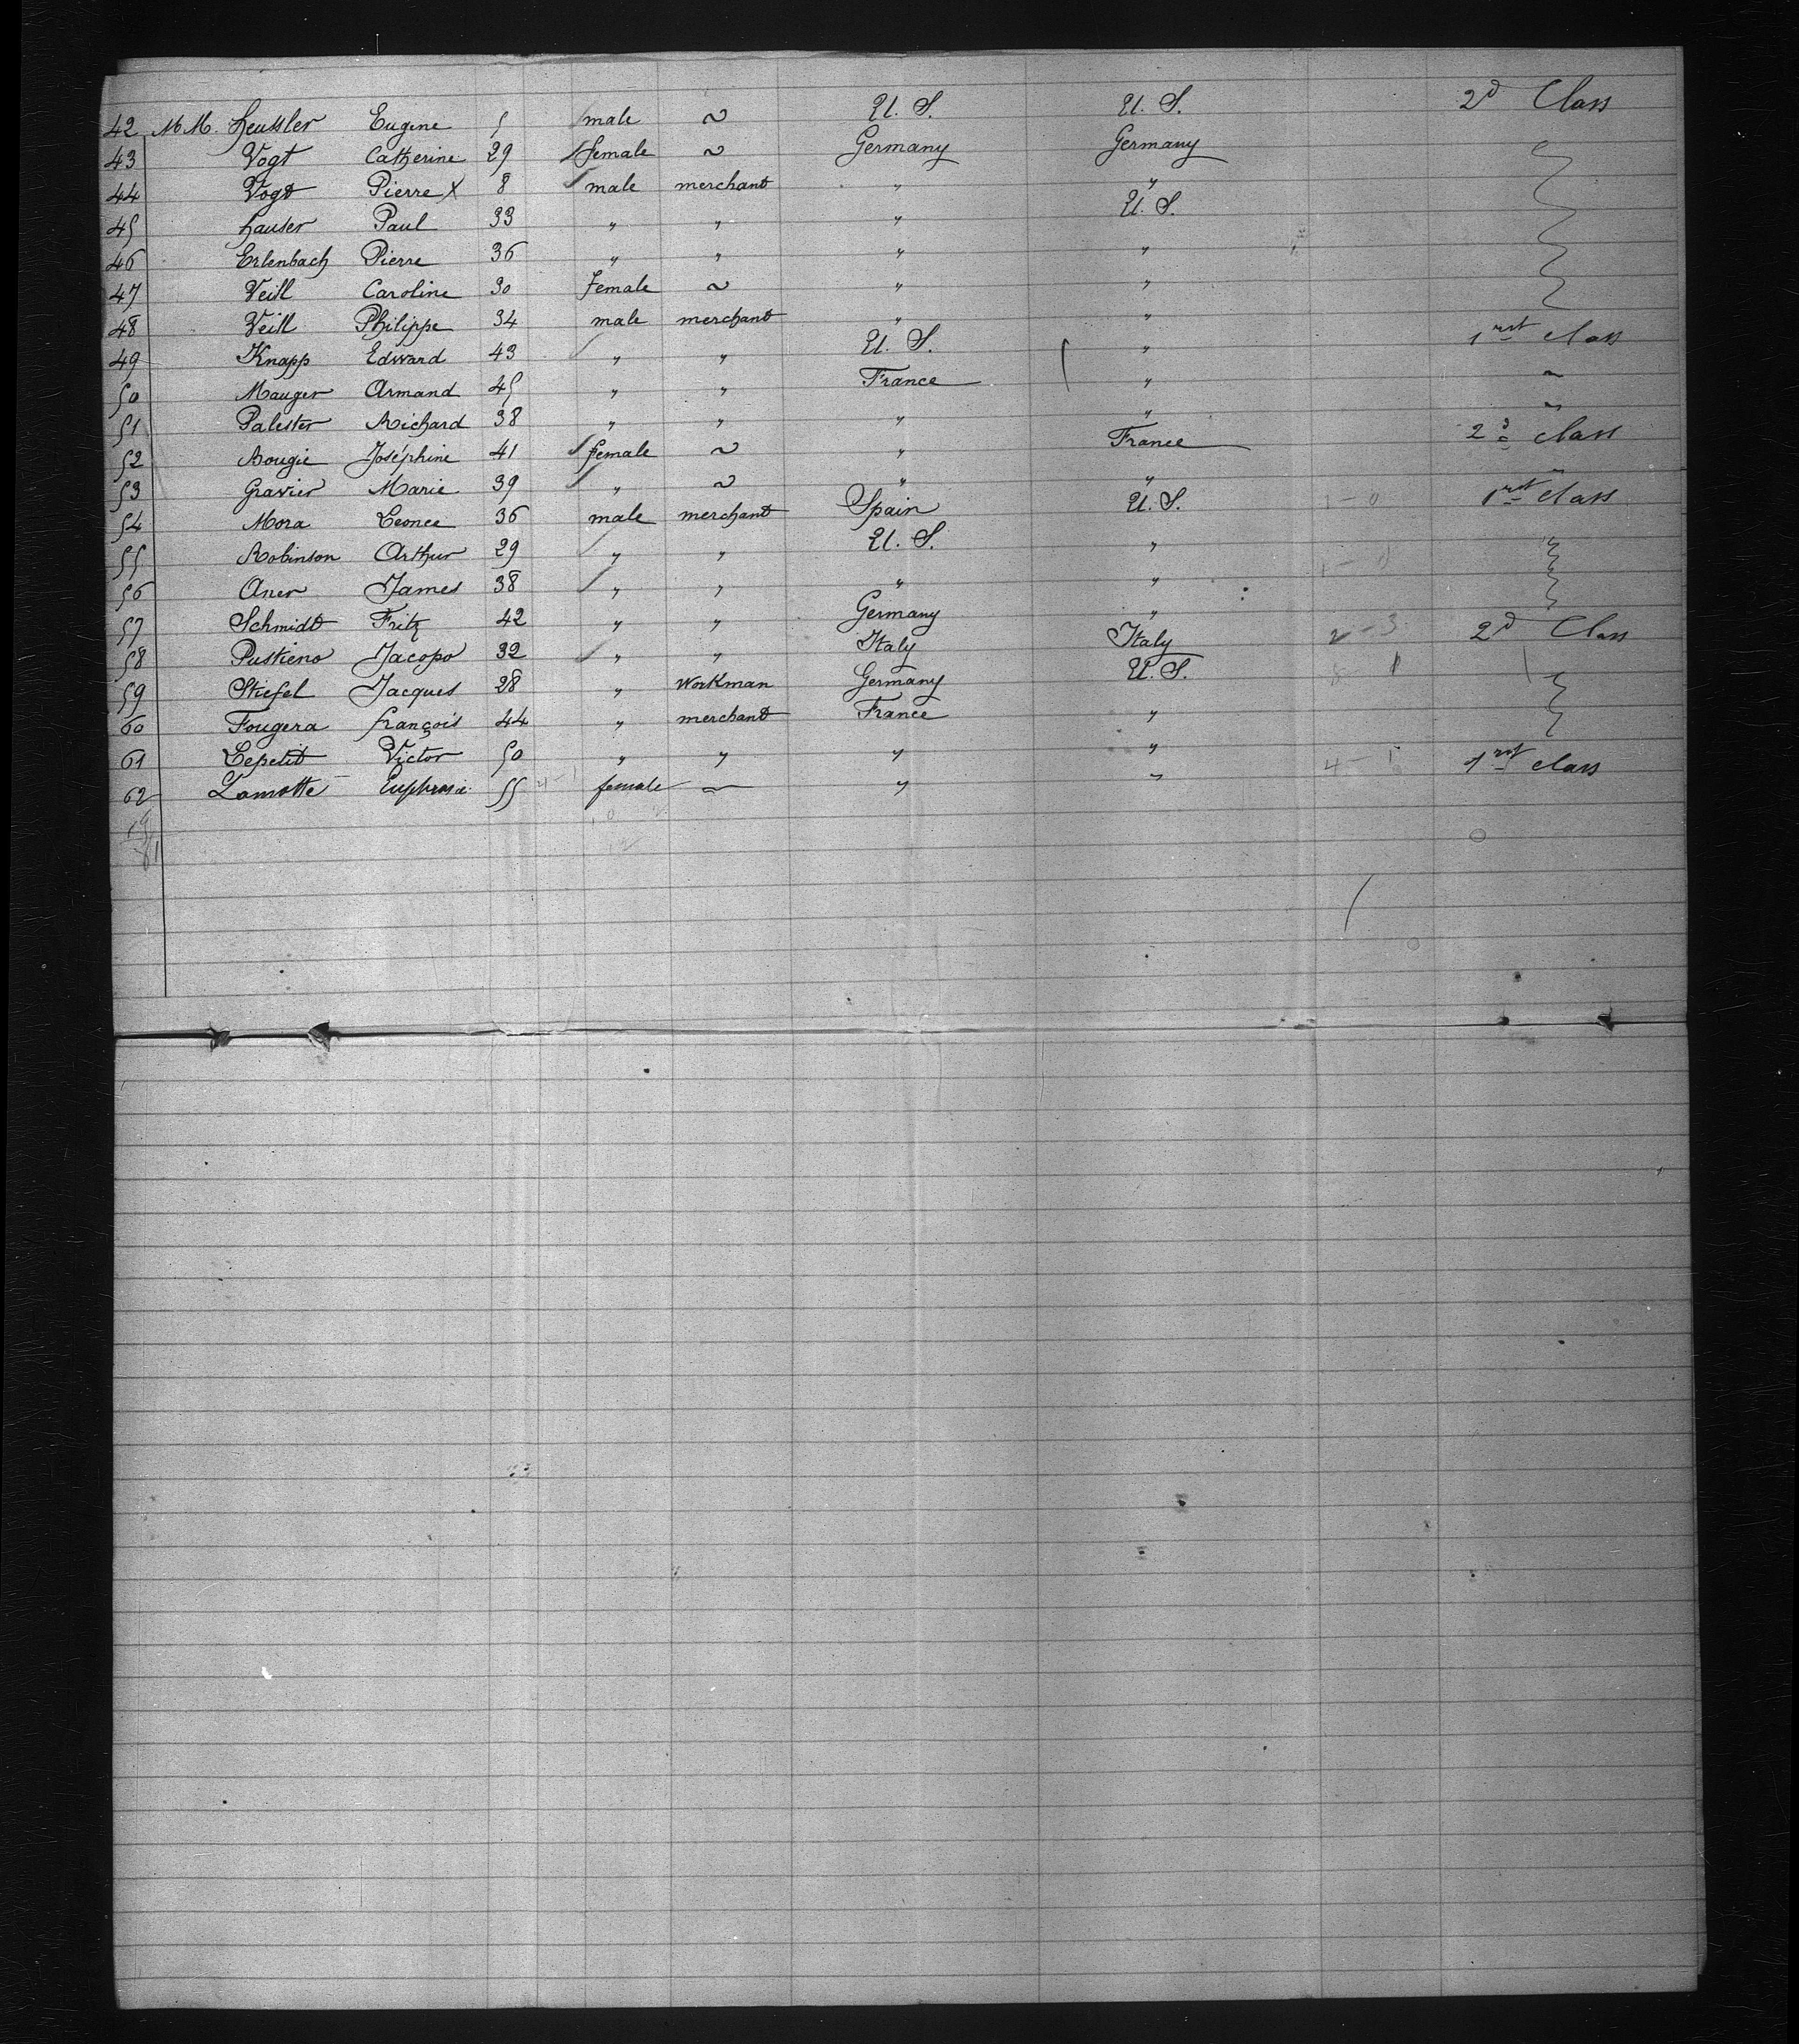 42 M M. Heussler Eugene 5 male ~ U. S. U. S. 2d Class
43 Vogt Catherine 29 female ~ Germany Germany
44 Vogt Pierre X 8 male merchant " "
45 Hauser Paul 33 " " " U. S.
46 Erlenbach Pierre 36 " " " "
47 Veill Caroline 30 Female ~ " "
48 Veill Philippe 34 male merchant " "
49 Knapp Edward 43 " " U. S. " 1rst class
50 Mauger Armand 45 " " France " "
51 Palester Richard 38 " " " " "
52 Bougie Joséphine 41 female ~ " France 2d class
53 Gravier Marie 39 " ~ " " "
54 Mora Leonce 36 male merchant Spain U. S. 1-0 1rst class
55 Robinson Arthur 29 " " U. S. "
56 Aner James 38 " " " "
57 Schmidt Fritz 42 " " Germany "
58 Pustieno Jacopo 32 " " Italy Italy 2-3 2d Class
59 Stiefel Jacques 28 " Workman Germany U. S.
60 Fougera françois 44 " merchant France "
61 Lepetit Victor 50 " " " "
62 Lamotte Euphrasie 55 female ~ " " 4-1 1rst class